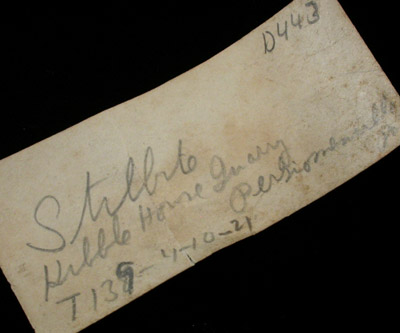 D443
Stilbite
Kibble House Quarry
Perkiomenville
T135-4-10-21